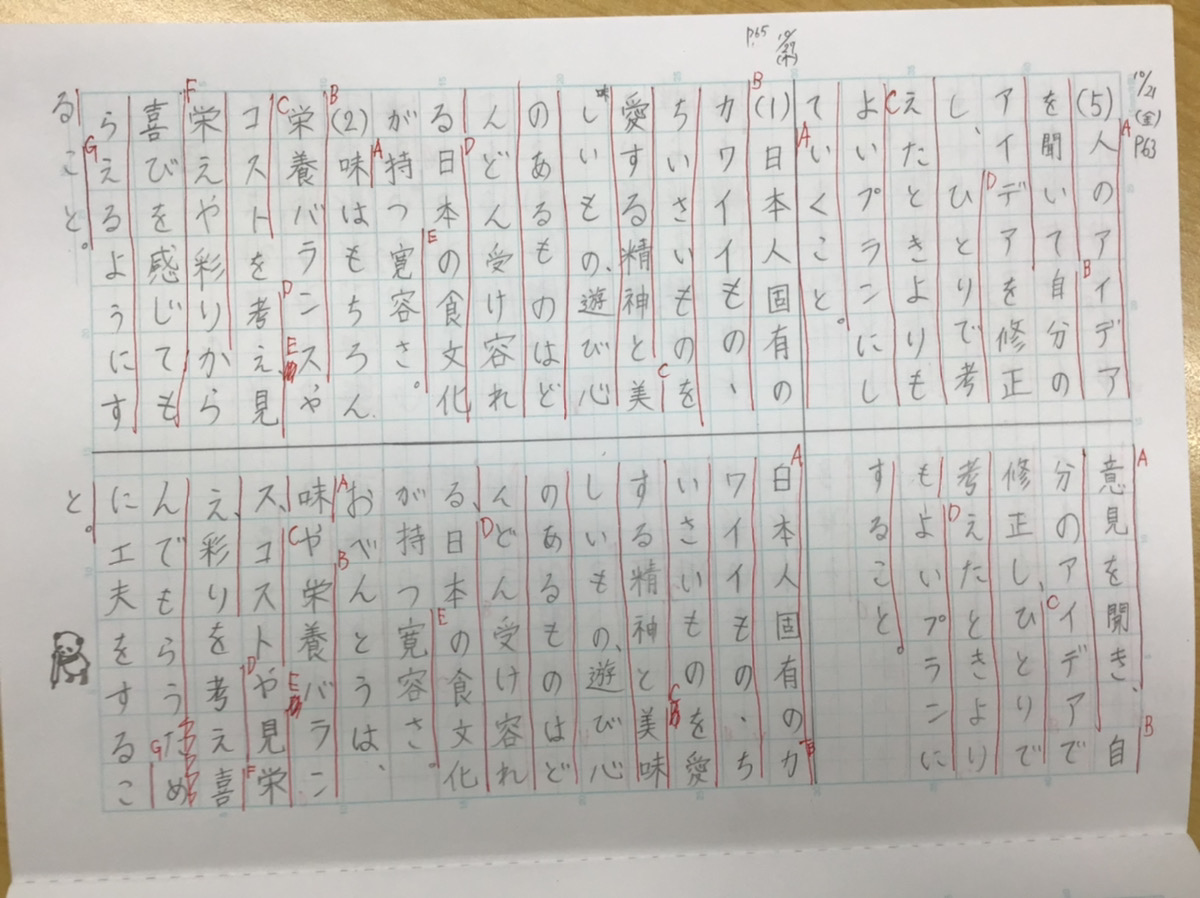 10/21
(金)
P63
(5)人のアイデア
を聞いて自分の
アイデアを修正
し、ひとりで考
えたときよりも
よいプランにし
ていくこと。
10/27
(木)
P.65
(1)日本人固有の
カワイイもの、
ちいさいものを
愛する精神と美
味
しいもの、遊び心
のあるものはど
んどん受け容れ
る日本の食文化
が持つ寛容さ。
(2)味はもちろん
栄養バランスや
コストを考え、見
栄えや彩りから
喜びを感じても
らえるようにす
ること。
A
B
D
C
A
B
C
D
E
A
B
C
D
E
F
G
意見を聞き、自
分のアイデアで
修正し、ひとりで
考えたときより
もよいプランに
すること。
日本人固有のカ
ワイイもの、ち
いさいものを愛
する精神と美味
しいもの、遊び心
のあるものはど
んどん受け容れ
る、日本の食文化
が持つ寛容さ。
おべんとうは、
味や栄養バラン
ス、コストや見栄
え、彩りを考え喜
んでもらうため
に工夫をするこ
と。
A
B
C
D
A
B
C
D
E
A
B
C
D
E
F
G